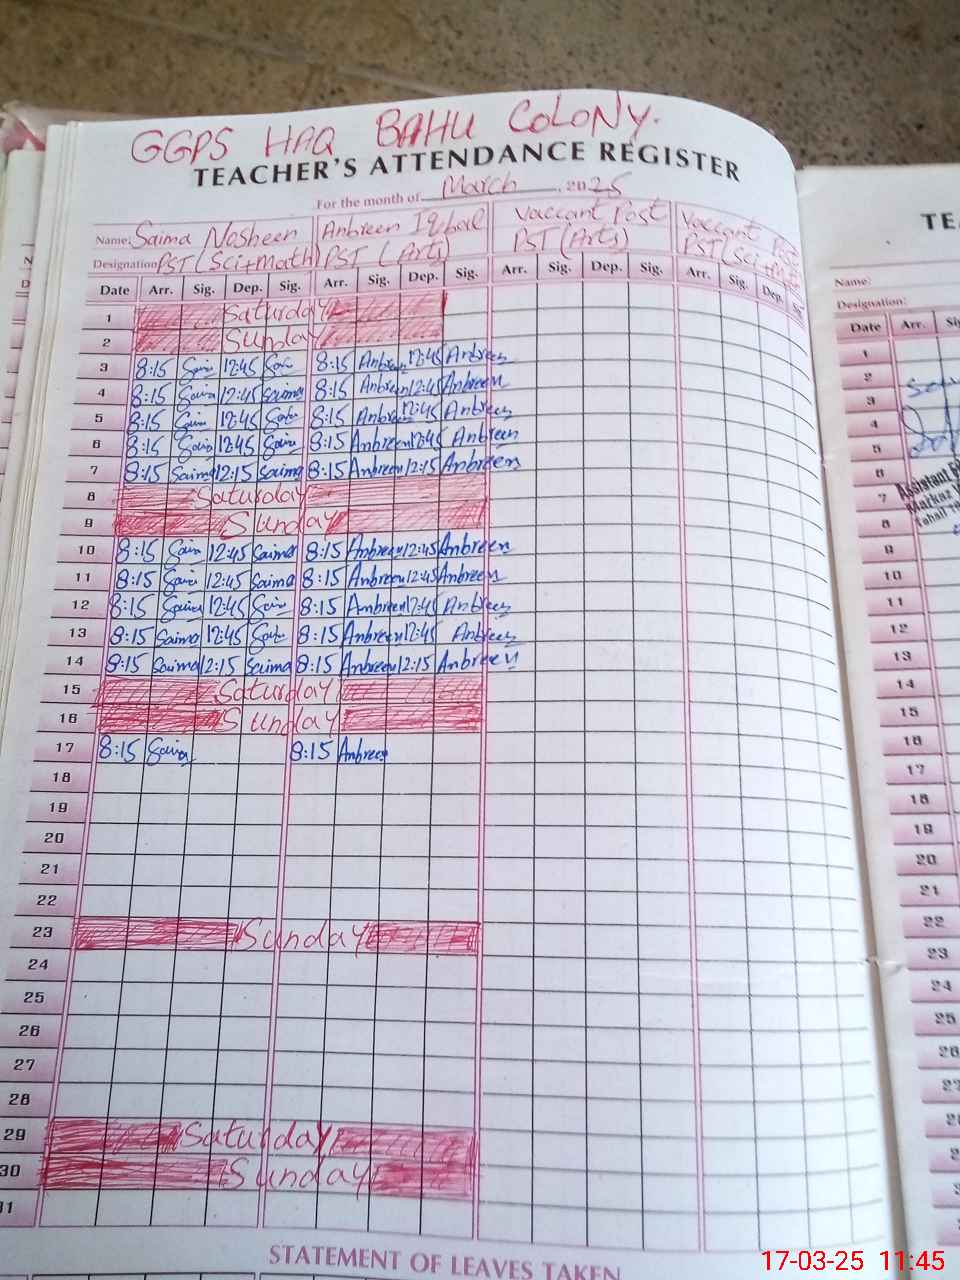 GGPS HAQ BAHU COLONY.
TEACHER'S ATTENDANCE REGISTER
For the month of March, 2025
Name: Saima Nosheen Anbreen Iqbal Vaccant Post Vaccant Post
Designation PST (Sci+Math) PST (Arts) PST (Arts) PST (Sci+Math)
Date Arr. Sig. Dep. Sig. Arr. Sig. Dep. Sig. Arr. Sig. Dep. Sig. Arr. Sig. Dep.
1 Saturday
2 Sunday
3 8:15 Saima 12:45 8:15 Anbreen 12:45 Anbreen
4 8:15 Saima 12:45 Saima 8:15 Anbreen 12:45 Anbreen
5 8:15 Saima 12:45 8:15 Anbreen 12:45 Anbreen
6 8:15 Saima 12:45 Saima 8:15 Anbreen 12:45 Anbreen
7 8:15 Saima 12:15 Saima 8:15 Anbreen 12:15 Anbreen
8 Saturday
9 Sunday
10 8:15 Saima 12:45 Saima 8:15 Anbreen 12:45 Anbreen
11 8:15 Saima 12:45 Saima 8:15 Anbreen 12:45 Anbreen
12 8:15 Saima 12:45 Saima 8:15 Anbreen 12:45 Anbreen
13 8:15 Saima 12:45 8:15 Anbreen 12:45 Anbreen
14 8:15 Saima 12:15 Saima 8:15 Anbreen 12:15 Anbreen
15 Saturday
16 Sunday
17 8:15 Saima 8:15 Anbreen
18
19
20
21
22
23 Sunday
24
25
26
27
28
29 Saturday
30 Sunday
31
STATEMENT OF LEAVES TAKEN
Name:
Designation:
Date Arr.
1
2
3
4
5
6
7
8
9
10
11
12
13
14
15
16
17
18
19
20
21
22
23
24
25
26
Assistant
Markaz
17-03-25 11:45